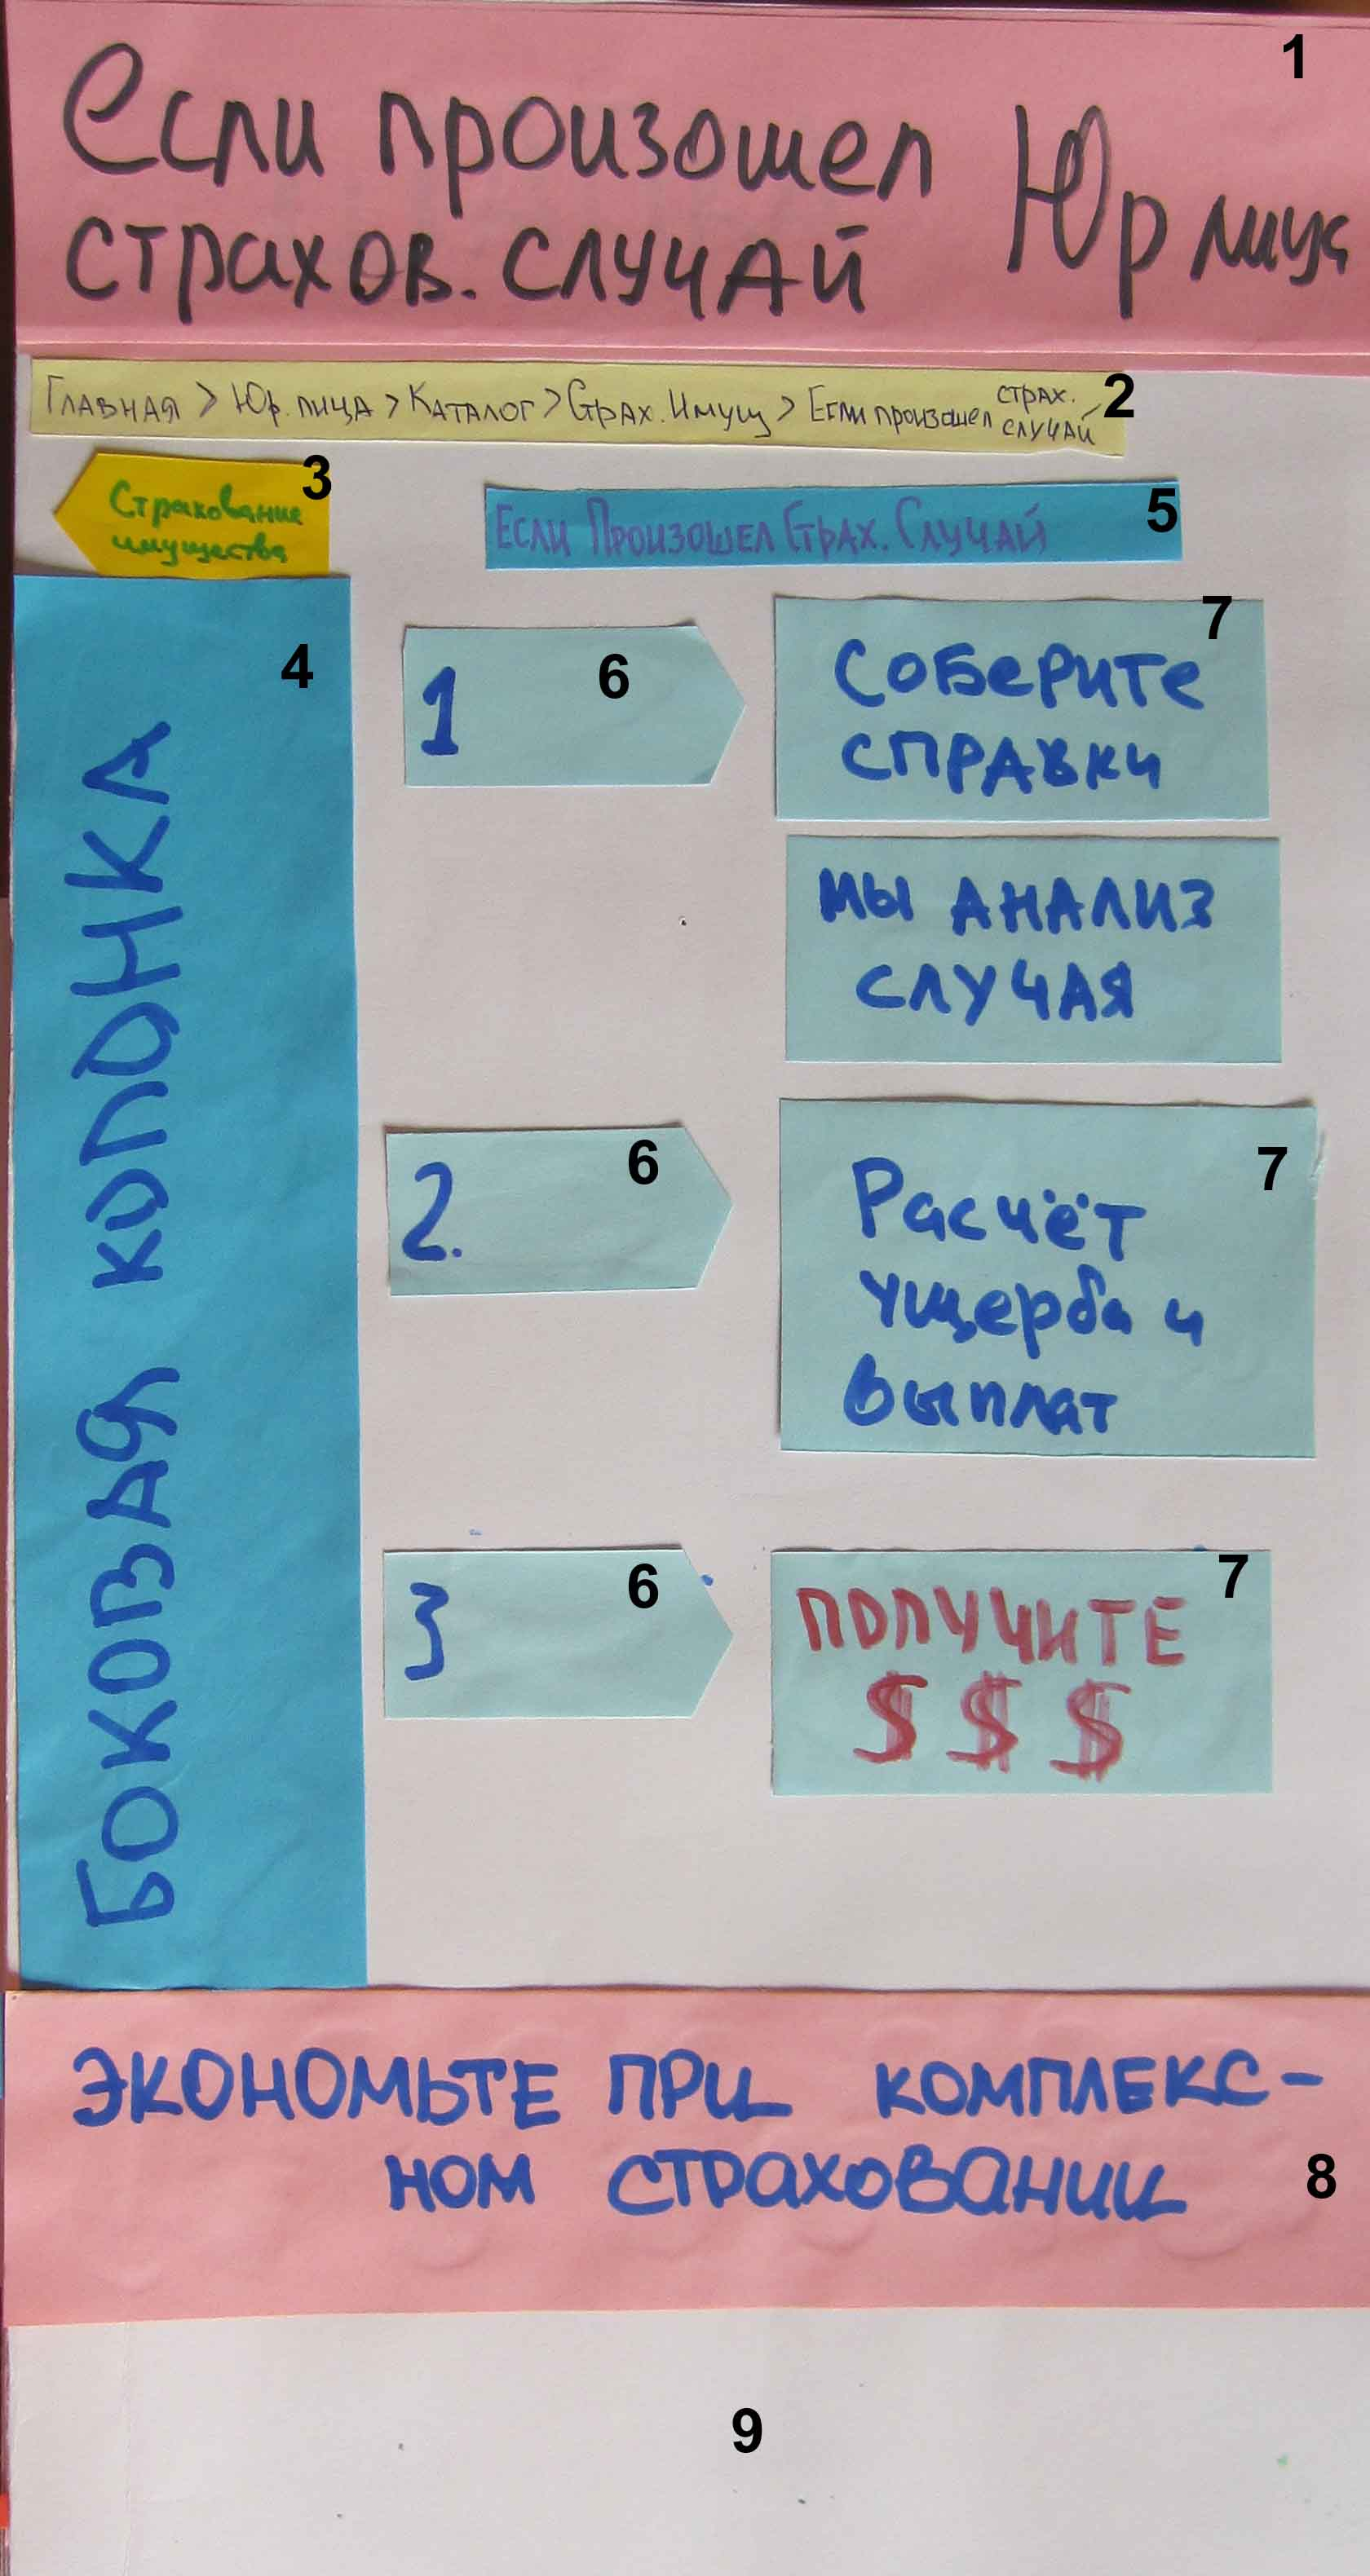 1
Если произошел
страхов. случай
Юр лица
Главная > Юр. лица > Каталог > Страх. Имущ > Если произошел страх. случай
2
Страхование
имущества
3
Если Произошел Страх. Случай
5
4
БОКОВАЯ КОЛОНКА
1
6
7
Соберите
справки
мы анализ
случая
2.
6
7
Расчёт
ущерба и
выплат
3
6
7
ПОЛУЧИТЕ
$ $ $
ЭКОНОМЬТЕ ПРИ КОМПЛЕКС-
НОМ СТРАХОВАНИИ
8
9